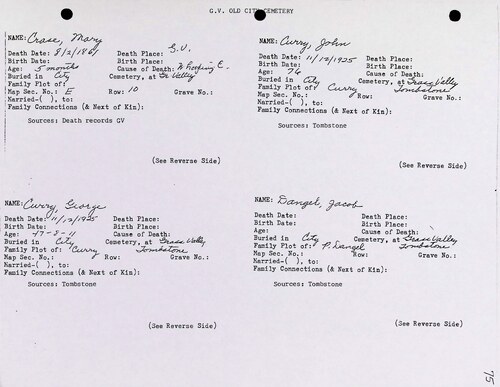 G.V. OLD CITY CEMETERY
NAME: Crase, Mary
Death Date: 8/2/1867 Death Place: G.V.
Birth Date: Birth Place:
Age: 5 months Cause of Death: Whooping C.
Buried in City Cemetery, at Gr. Valley
Family Plot of:
Map Sec. No.: E Row: 10 Grave No.:
Married-( ), to:
Family Connections (& Next of Kin):
Sources: Death records GV
(See Reverse Side)
NAME: Curry, John
Death Date: 11/12/1925 Death Place:
Birth Date: Birth Place:
Age: 76 Cause of Death:
Buried in City Cemetery, at Grass Valley
Family Plot of: Curry Tombstone
Map Sec. No.: Row: Grave No.:
Married-( ), to:
Family Connections (& Next of Kin):
Sources: Tombstone
(See Reverse Side)
NAME: Curry, George
Death Date: 11/13/1925 Death Place:
Birth Date: Birth Place:
Age: 47-8-11 Cause of Death:
Buried in City Cemetery, at Grass Valley
Family Plot of: Curry Tombstone
Map Sec. No.: Row: Grave No.:
Married-( ), to:
Family Connections (& Next of Kin):
Sources: Tombstone
(See Reverse Side)
NAME: Dangel, Jacob
Death Date: Death Place:
Birth Date: Birth Place:
Age: Cause of Death:
Buried in City Cemetery, at Grass Valley
Family Plot of: P. Dangel Tombstone
Map Sec. No.: Row: Grave No.:
Married-( ), to:
Family Connections (& Next of Kin):
Sources: Tombstone
(See Reverse Side)
75